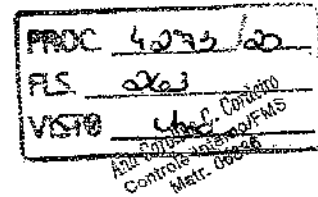 PROC 4273/20
FLS. 263
VISTO
Ana Caroline C. Cordeiro
Controle Interno/FMS
Matr. 00836